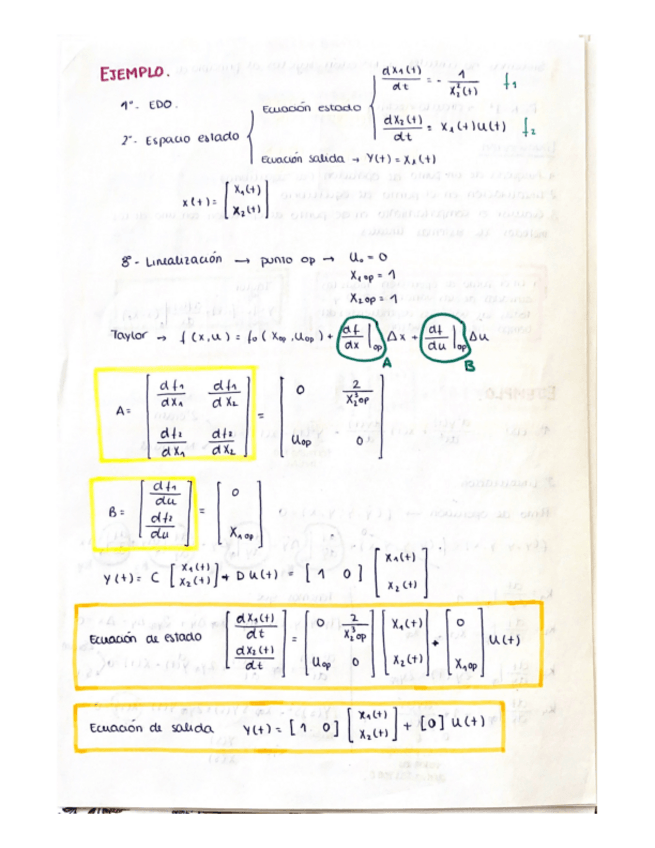 EJEMPLO.
1º. EDO.
2º. Espacio estado { Ecuación estado { dx₁(t)/dt = - 1/x₂²(t) f₁
dx₂(t)/dt = x₁(t)u(t) f₂
Ecuación salida → Y(t) = X₁(t)
x(t) = [x₁(t) x₂(t)]
8º- Linealización → punto op → u₀ = 0
x₁op = 1
x₂op = 1
Taylor → f(x,u) = f₀(xop, uop) + df/dx|op Δx + df/du|op Δu
A B
A = [df₁/dx₁ df₁/dx₂; df₂/dx₁ df₂/dx₂] = [0 2/x₂³op; uop 0]
B = [df₁/du; df₂/du] = [0; x₁op]
Y(t) = C [x₁(t); x₂(t)] + D u(t) = [1 0] [x₁(t); x₂(t)]
Ecuación de estado [dx₁(t)/dt; dx₂(t)/dt] = [0 2/x₂³op; uop 0] [x₁(t); x₂(t)] + [0; x₁op] u(t)
Ecuación de salida Y(t) = [1 0] [x₁(t); x₂(t)] + [0] u(t)